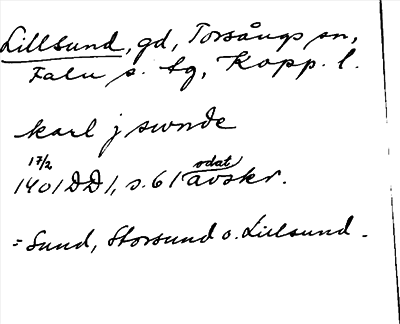 Lillsund, gd, Torsångs sn,
Falu s. tg, Kopp. l.
karl j swnde
17/2 odat
1401 DD1, s. 61 avskr.
= Sund, Storsund o. Lillsund.